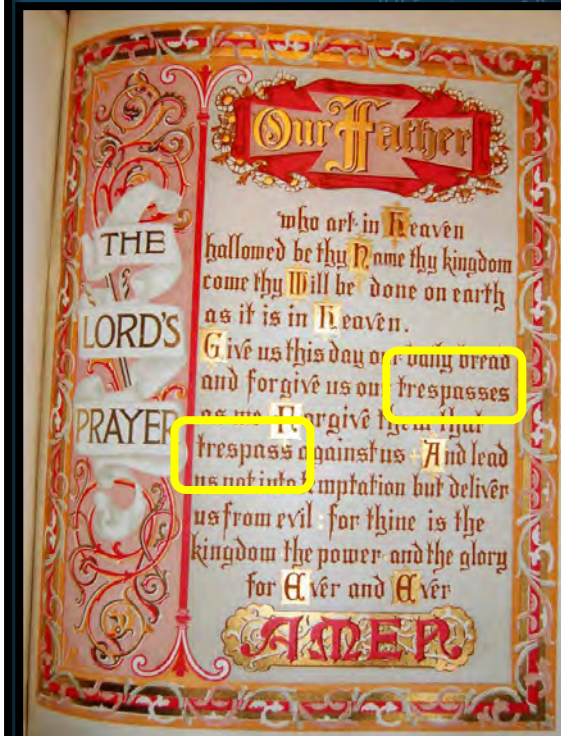 THE
LORD'S
PRAYER
Our Father
who art in Heaven
hallowed be thy Name thy kingdom
come thy Will be done on earth
as it is in Heaven.
Give us this day our daily bread
and forgive us our trespasses
as we Forgive them that
trespass against us And lead
us not into temptation but deliver
us from evil : for thine is the
kingdom the power and the glory
for Ever and Ever
AMEN